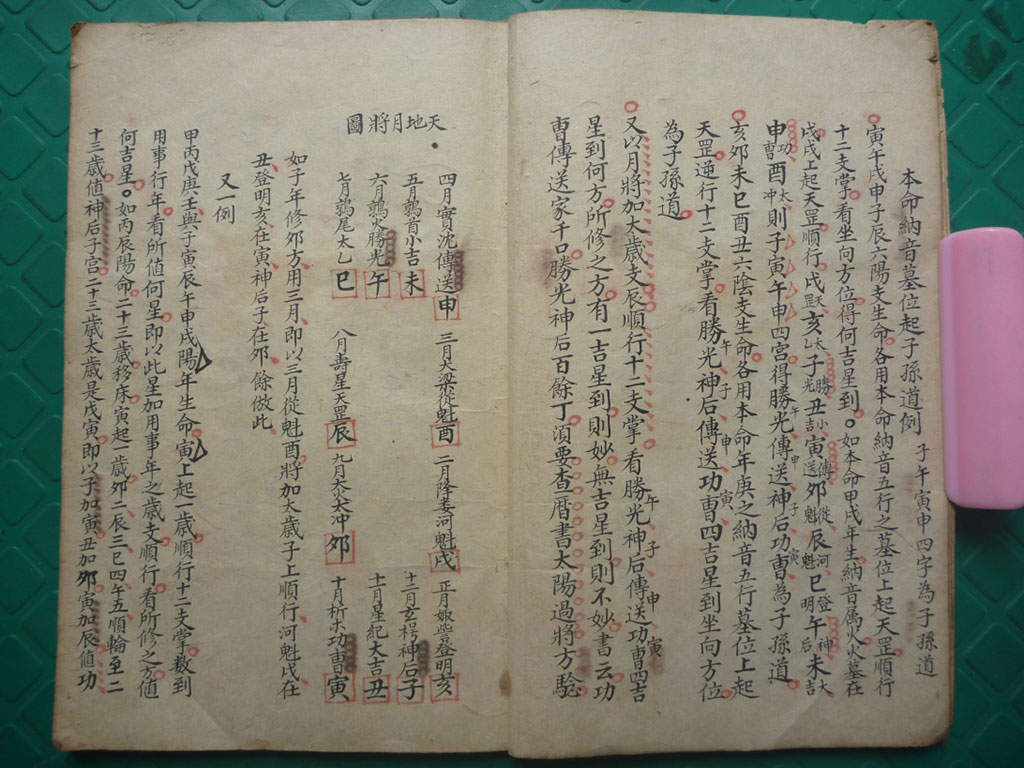 本命納音墓位起子孫道例 子午寅申四字為子孫道
寅午戌申子辰六陽支生命各用本命納音五行之墓位上起天罡順行
十二支掌看坐向方位得何吉星到。如本命甲戌年生納音屬火火墓在
戌戌上起天罡順行戌天罡亥太乙子勝光丑小吉寅傳送卯從魁辰河魁巳登明午神后未大吉
申功曹酉太冲則子寅午申四宮得勝光傳送神后功曹為子孫道
亥卯未巳酉丑六陰支生命各用本命年庚之納音五行墓位上起
天罡逆行十二支掌看勝光午神后子傳送申功曹寅四吉星到坐向方位
為子孫道
又以月將加太歲支辰順行十二支掌看勝光午神后子傳送申功曹寅四吉
星到何方所修之方有一吉星到則妙無吉星到則不妙書云功
曹傳送家千口勝光神后百餘丁須要查曆書太陽過將方驗
天地月將圖
四月實沈傳送申 三月大梁從魁酉 二月降婁河魁戌 正月娵訾登明亥
五月鶉首小吉未 十二月玄枵神后子
六月鶉火勝光午 十一月星紀大吉丑
七月鶉尾太乙巳 八月壽星天罡辰 九月大火太冲卯 十月析木功曹寅
如子年修卯方用三月即以三月從魁酉將加太歲子上順行河魁戌在
丑登明亥在寅神后子在卯餘倣此
又一例
甲丙戊庚壬與子寅辰午申戌陽年生命寅上起一歲順行十二支掌數到
用事行年看所值何星即以此星加用事年之歲支順行看所修之方值
何吉星。如丙辰陽命二十三歲移床寅起一歲卯二辰三巳四午五順輪至二
十三歲值神后子宮二十三歲太歲是戊寅即以子加寅丑加卯寅加辰值功